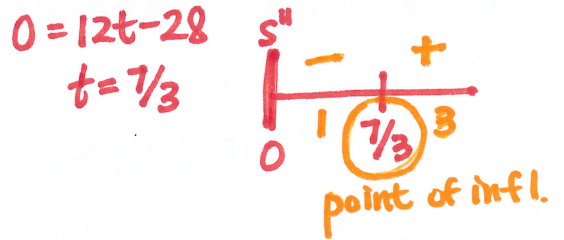 0 = 12t - 28
t = 7/3
s"
− +
0 1 7/3 3
point of infl.